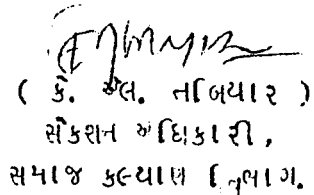 ( કે. એલ. તબિયાર )
સેકશન અધિકારી,
સમાજ કલ્યાણ વિભાગ.